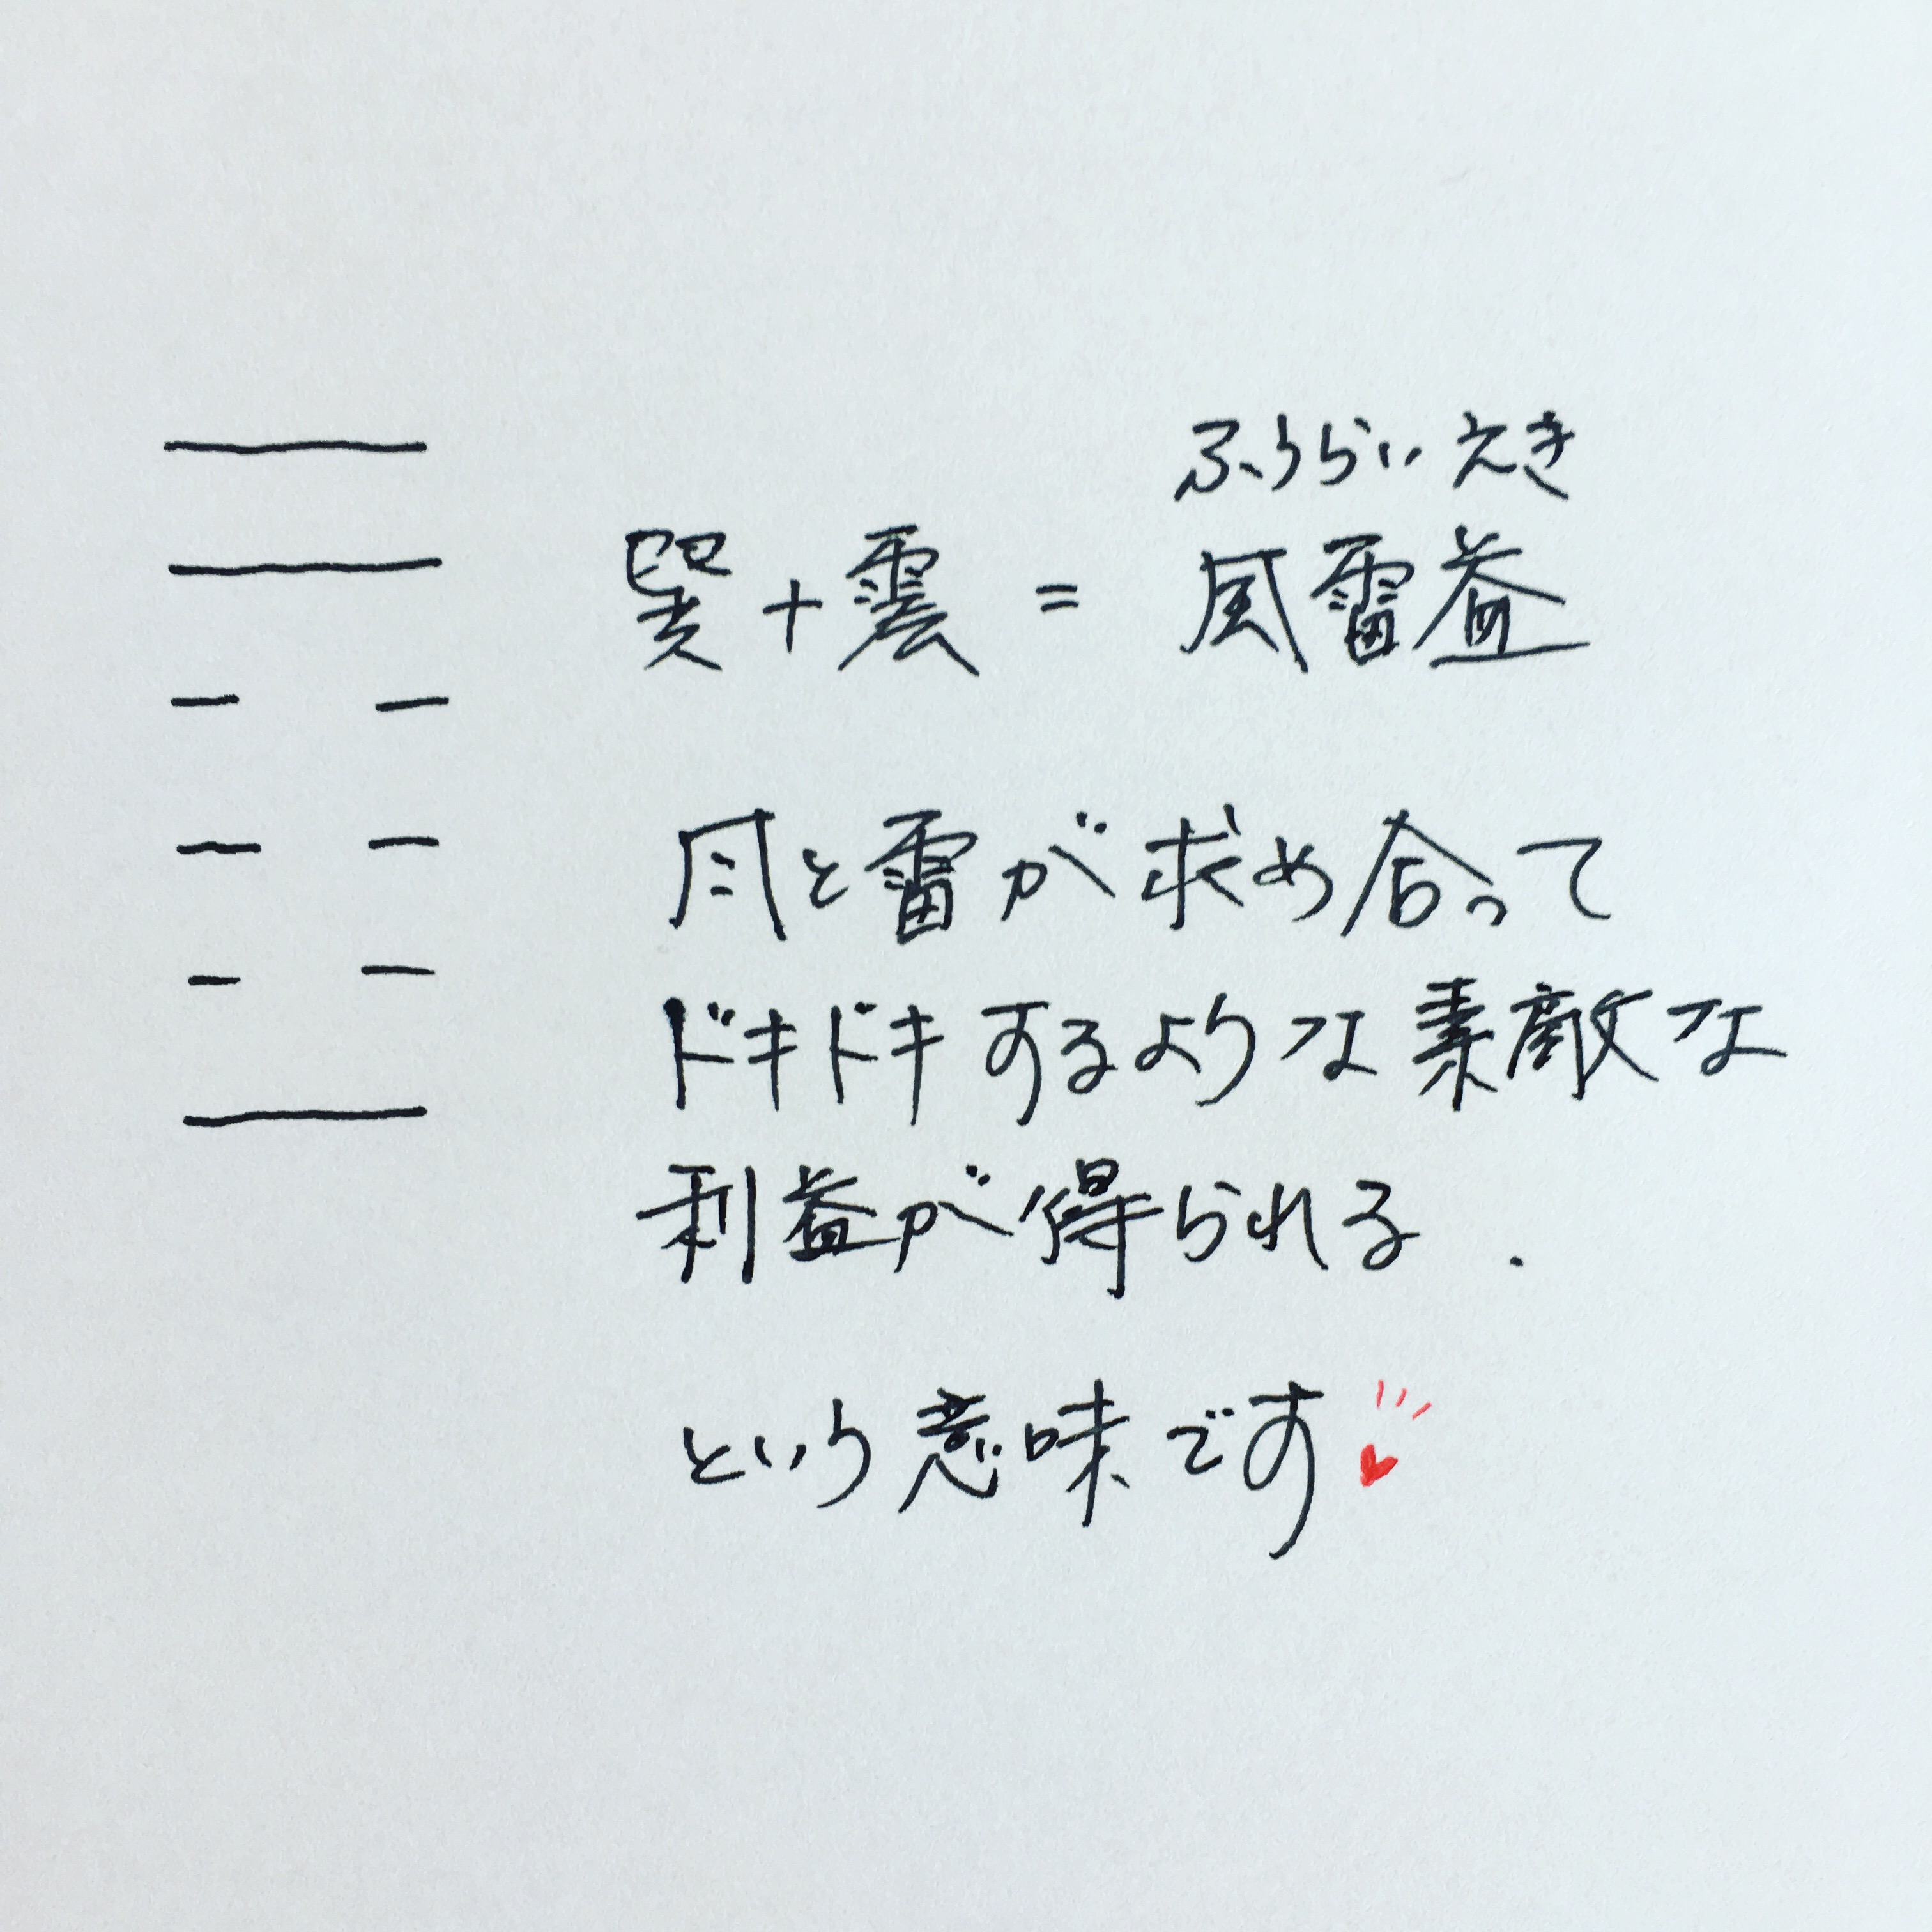 ふうらいえき
巽＋震＝風雷益
風と雷が求め合って
ドキドキするような素敵な
利益が得られる.
という意味です